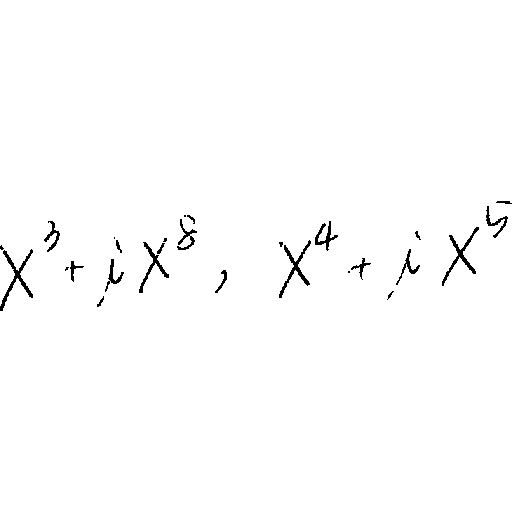 x³ + i x⁸ , x⁴ + i x⁵